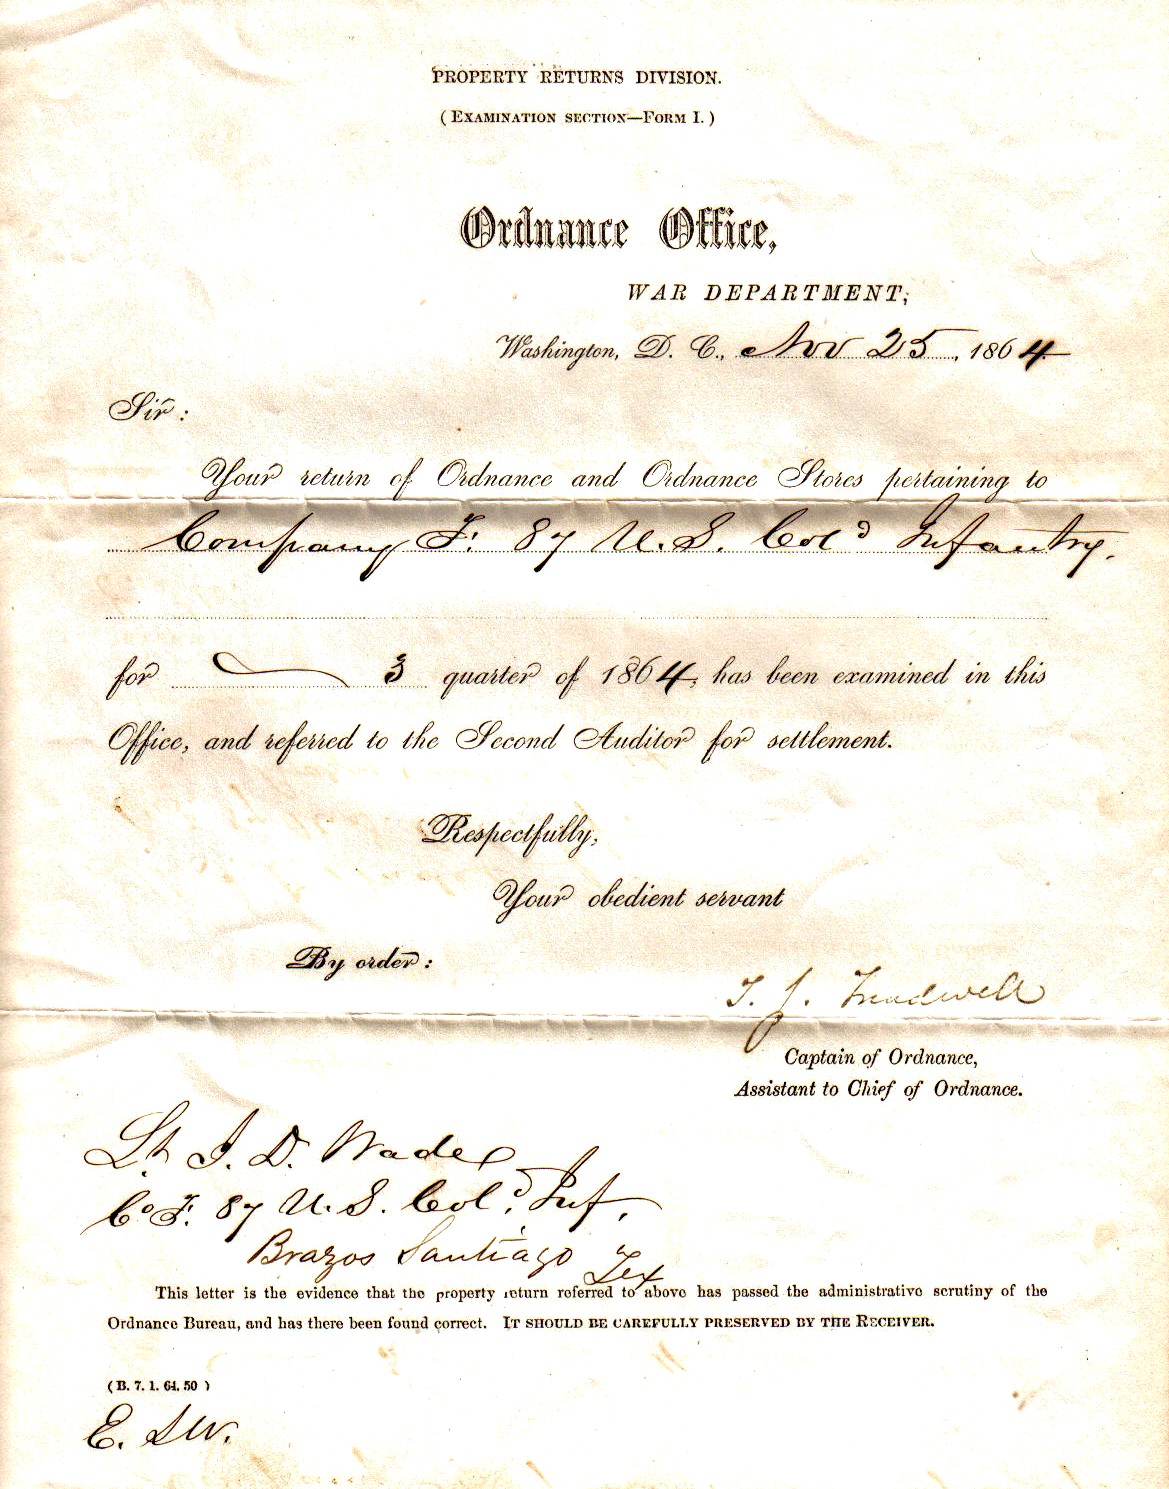 PROPERTY RETURNS DIVISION.
(EXAMINATION SECTION—FORM I.)
Ordnance Office,
WAR DEPARTMENT,
Washington, D. C., Nov 25, 1864
Sir:
Your return of Ordnance and Ordnance Stores pertaining to
Company F. 87 U.S. Cold Infantry.
for 3 quarter of 1864, has been examined in this
Office, and referred to the Second Auditor for settlement.
Respectfully,
Your obedient servant
By order:
T. J. Treadwell
Captain of Ordnance,
Assistant to Chief of Ordnance.
Lt. J. D. Wade
Co F. 87 U.S. Cold. Inf.
Brazos Santiago
Tex
This letter is the evidence that the property return referred to above has passed the administrative scrutiny of the
Ordnance Bureau, and has there been found correct. IT SHOULD BE CAREFULLY PRESERVED BY THE RECEIVER.
(B. 7. 1. 64. 50)
E.